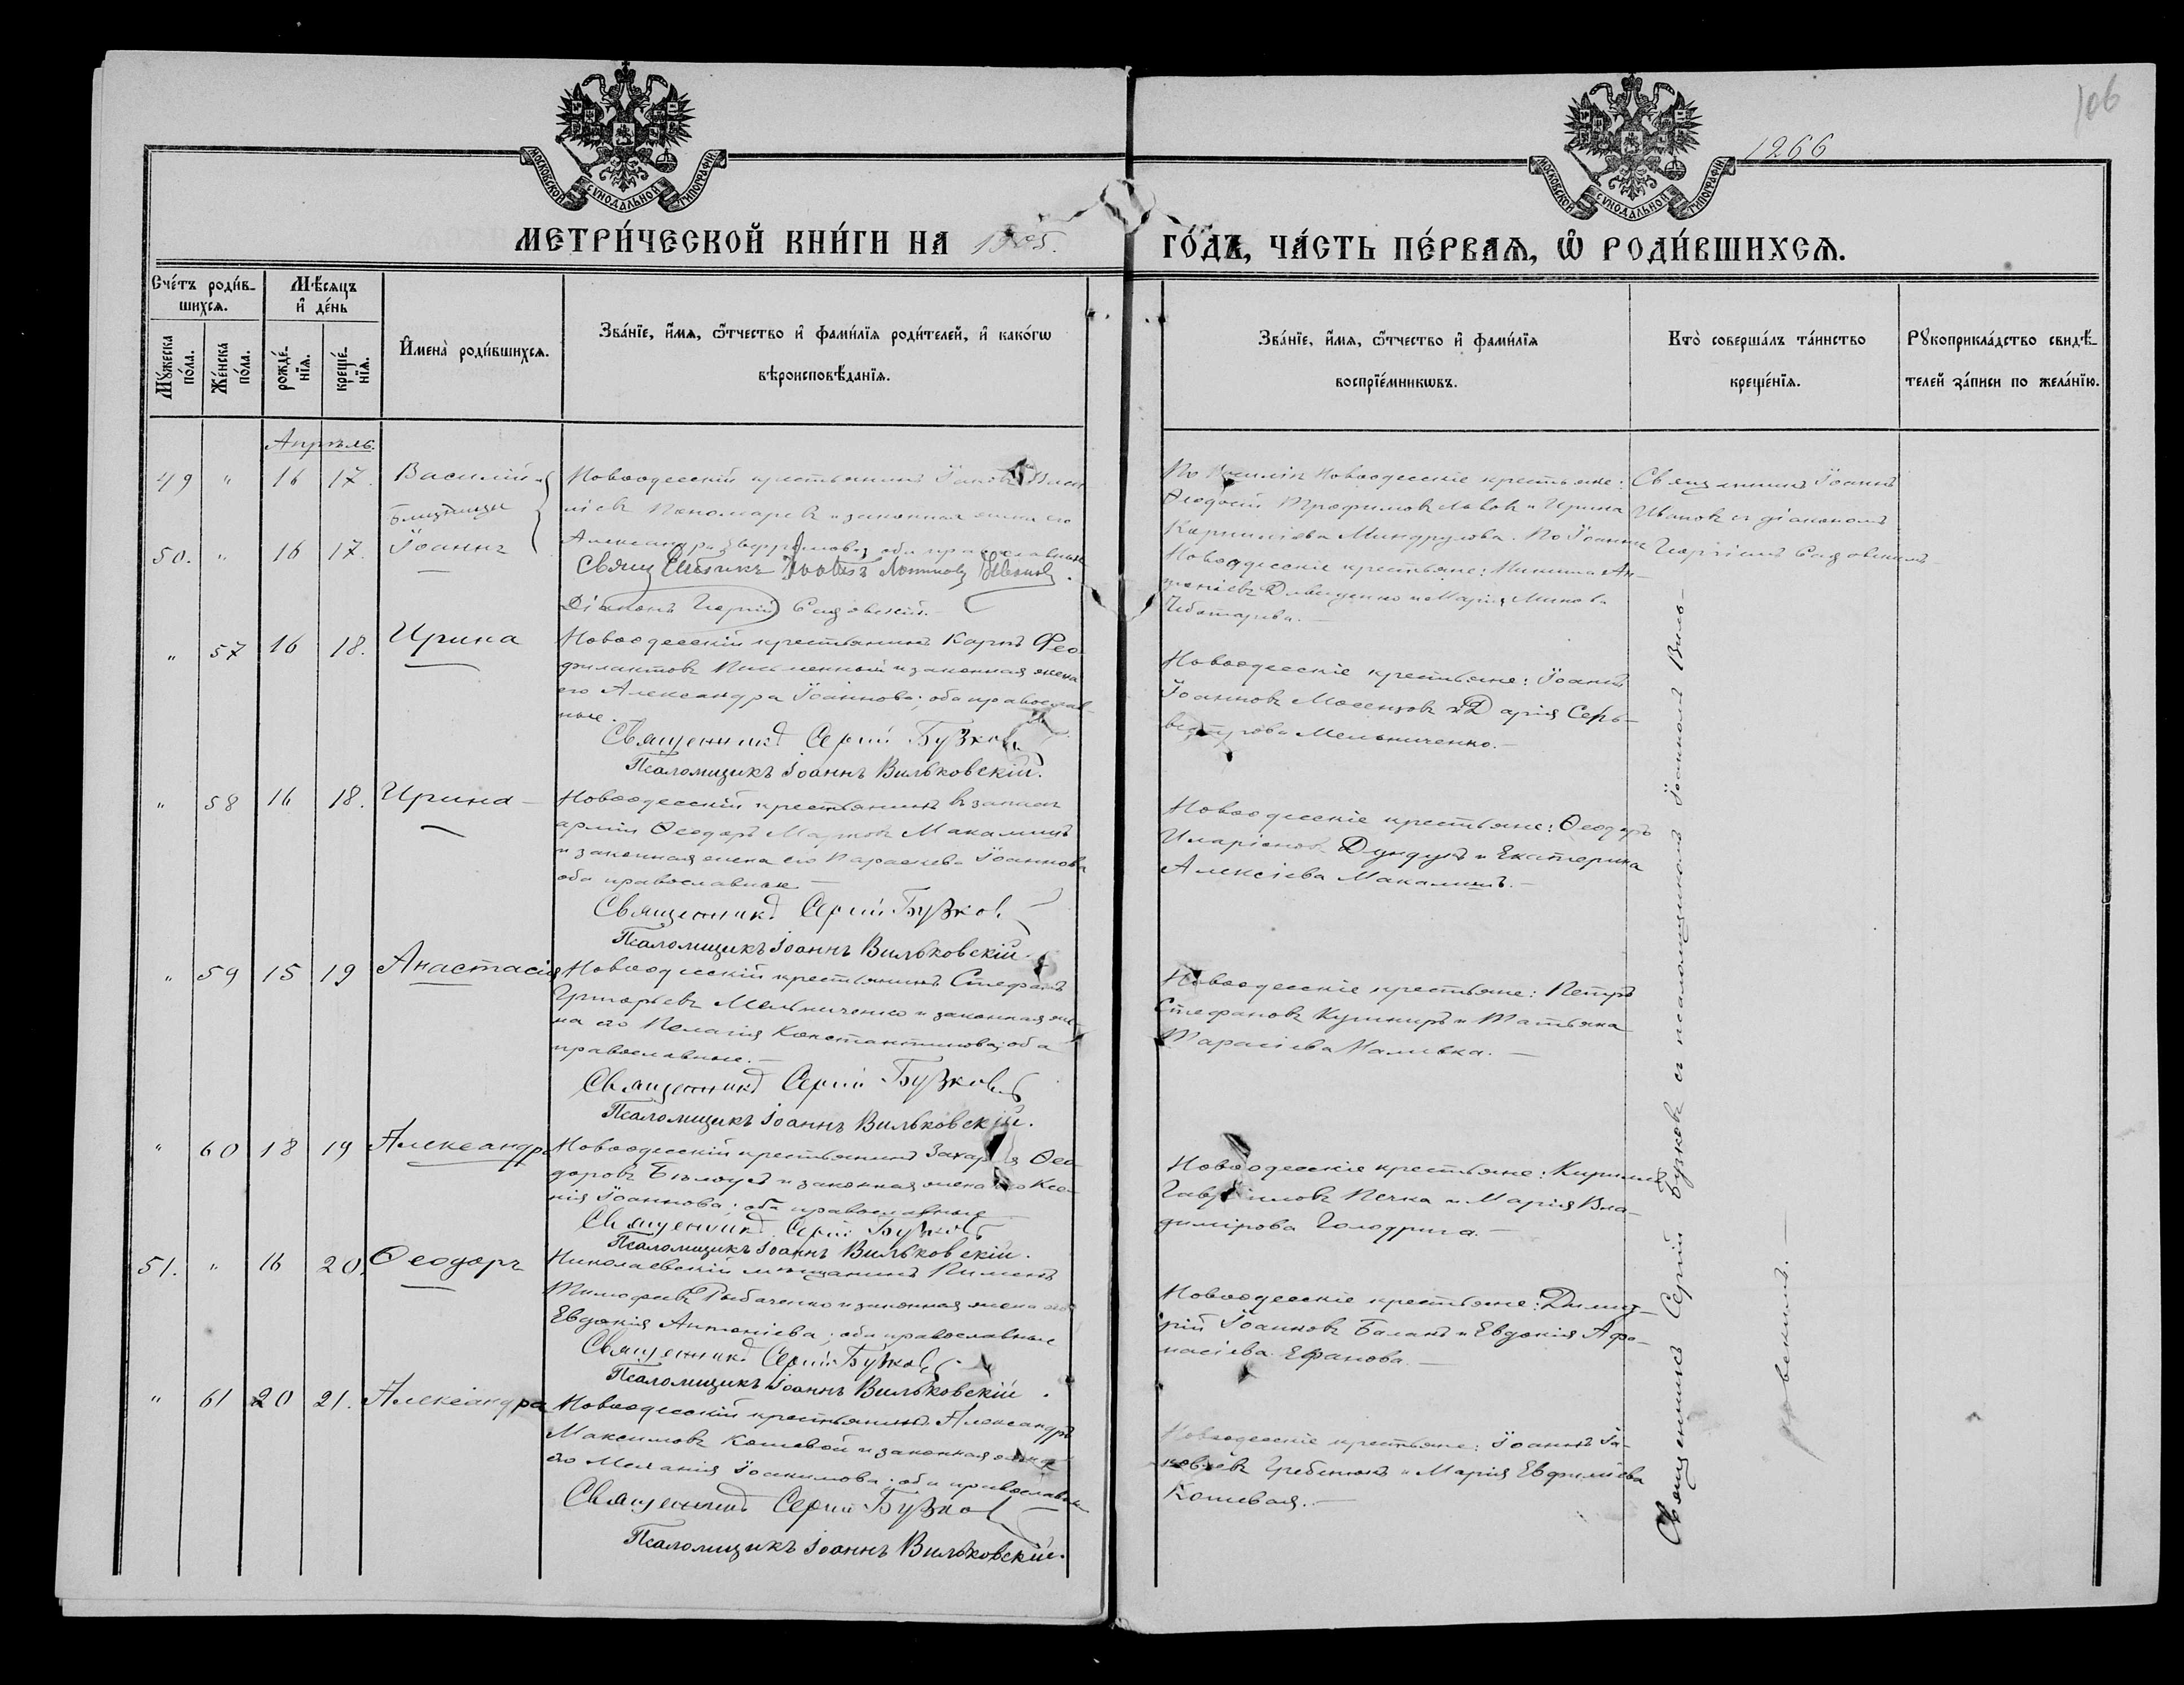 106
1266
МОСКОВСКОЙ СѴНОДАЛЬНОЙ ТИПОГРАФІИ
МОСКОВСКОЙ СѴНОДАЛЬНОЙ ТИПОГРАФІИ
МЕТРИ́ЧЕСКОЙ КНИ́ГИ НА 1905.
ГО́ДЪ, ЧА́СТЬ ПЕ́РВАѦ, Ѡ҆ РОДИ́ВШИХСѦ.
Сче́тъ роди́в-
шихсѧ.
Мѣ́сѧцъ
и҆ де́нь
Мꙋ́жеска
по́ла.
Же́нска
по́ла.
рожде́-
нїѧ.
креще́-
нїѧ.
И҆мена̀ роди́вшихсѧ.
Зва́нїе, и҆́мѧ, ѻ҆́тчество и҆ фами́лїѧ роди́телей, и҆ како́гѡ
вѣроисповѣ́данїѧ.
Зва́нїе, и҆́мѧ, ѻ҆́тчество и҆ фами́лїѧ
воспрїе́мникѡвъ.
Кто̀ соверша́лъ та́инство
креще́нїѧ.
Рꙋкоприкла́дство свидѣ́-
телей за́писи по жела́нїю.
Апрѣль.
49 " 16 17. Василій и
близнецы
50. " 16 17. Іоаннъ
Новоодесскій крестьянинъ Іаковъ
Пономаревъ и законная жена его
Александра оба православные
Свящ Іоаннъ Ивановъ
Діаконъ Георгій Садовскій.
По Василіи Новоодесскіе крестьяне:
Ѳеодосій Трофимовъ Львовъ и Ирина
Корниліева Миндрулова. По Іоаннѣ
Новоодесскіе крестьяне: Никита Ан-
тоніевъ Давиденко и Марія Минова
Чеботарева.
Священникъ Іоаннъ
Ивановъ съ діакономъ
Георгіемъ Садовскимъ.
" 57 16 18. Ирина
Новоодесскій крестьянинъ Карпъ Фео-
филактовъ Письменный и законная жена
его Александра Іоаннова; оба православ-
ные.
Священникъ Сергій Бузковъ
Псаломщикъ Іоаннъ Вильковскій.
Новоодесскіе крестьяне: Іоаннъ
Іоанновъ Мосенцовъ и Дарія Силь-
вестрова Мельниченко.
" 58 16 18. Ирина
Новоодесскій крестьянинъ въ запасѣ
арміи Ѳеодоръ Марковъ Макалишъ
и законная жена его Параскева Іоаннова
оба православные.
Священникъ Сергій Бузковъ
Псаломщикъ Іоаннъ Вильковскій.
Новоодесскіе крестьяне: Ѳеодоръ
Иларіоновъ Дундукъ и Екатерина
Алексіева Макалишъ.
" 59 15 19 Анастасія
Новоодесскій крестьянинъ Стефанъ
Григорьевъ Мельниченко и законная же-
на его Пелагія Константинова; оба
православные.
Священникъ Сергій Бузковъ
Псаломщикъ Іоаннъ Вильковскій.
Новоодесскіе крестьяне: Петръ
Стефановъ Кушниръ и Татьяна
Тарасіева Наливка.
" 60 18 19 Александръ
Новоодесскій крестьянинъ Захарія Ѳео-
доровъ Бѣлоусъ и законная жена его Ксе-
нія Іоаннова; оба православные
Священникъ Сергій Бузковъ
Псаломщикъ Іоаннъ Вильковскій.
Новоодесскіе крестьяне: Кириллъ
Гавріиловъ Печка и Марія Вла-
димірова Голодрига.
51. " 16 20. Ѳеодоръ
Николаевскій мѣщанинъ Пименъ
Тимофеевъ Рыбаченко и законная жена его
Евдокія Антоніева; оба православные
Священникъ Сергій Бузковъ
Псаломщикъ Іоаннъ Вильковскій.
Новоодесскіе крестьяне: Димит-
рій Іоанновъ Баланъ и Евдокія Афа-
насіева Ефанова.
" 61 20 21. Александра
Новоодесскій крестьянинъ Александръ
Максимовъ Кошевой и законная жена
его Меланія Іоакимова; оба православные
Священникъ Сергій Бузковъ
Псаломщикъ Іоаннъ Вильковскій.
Новоодесскіе крестьяне: Іоаннъ Іа-
ковлевъ Гребенюкъ и Марія Евфиміева
Кошевая.
Священникъ Сергій Бузковъ съ псаломщикомъ Іоанномъ Виль-
ковскимъ.